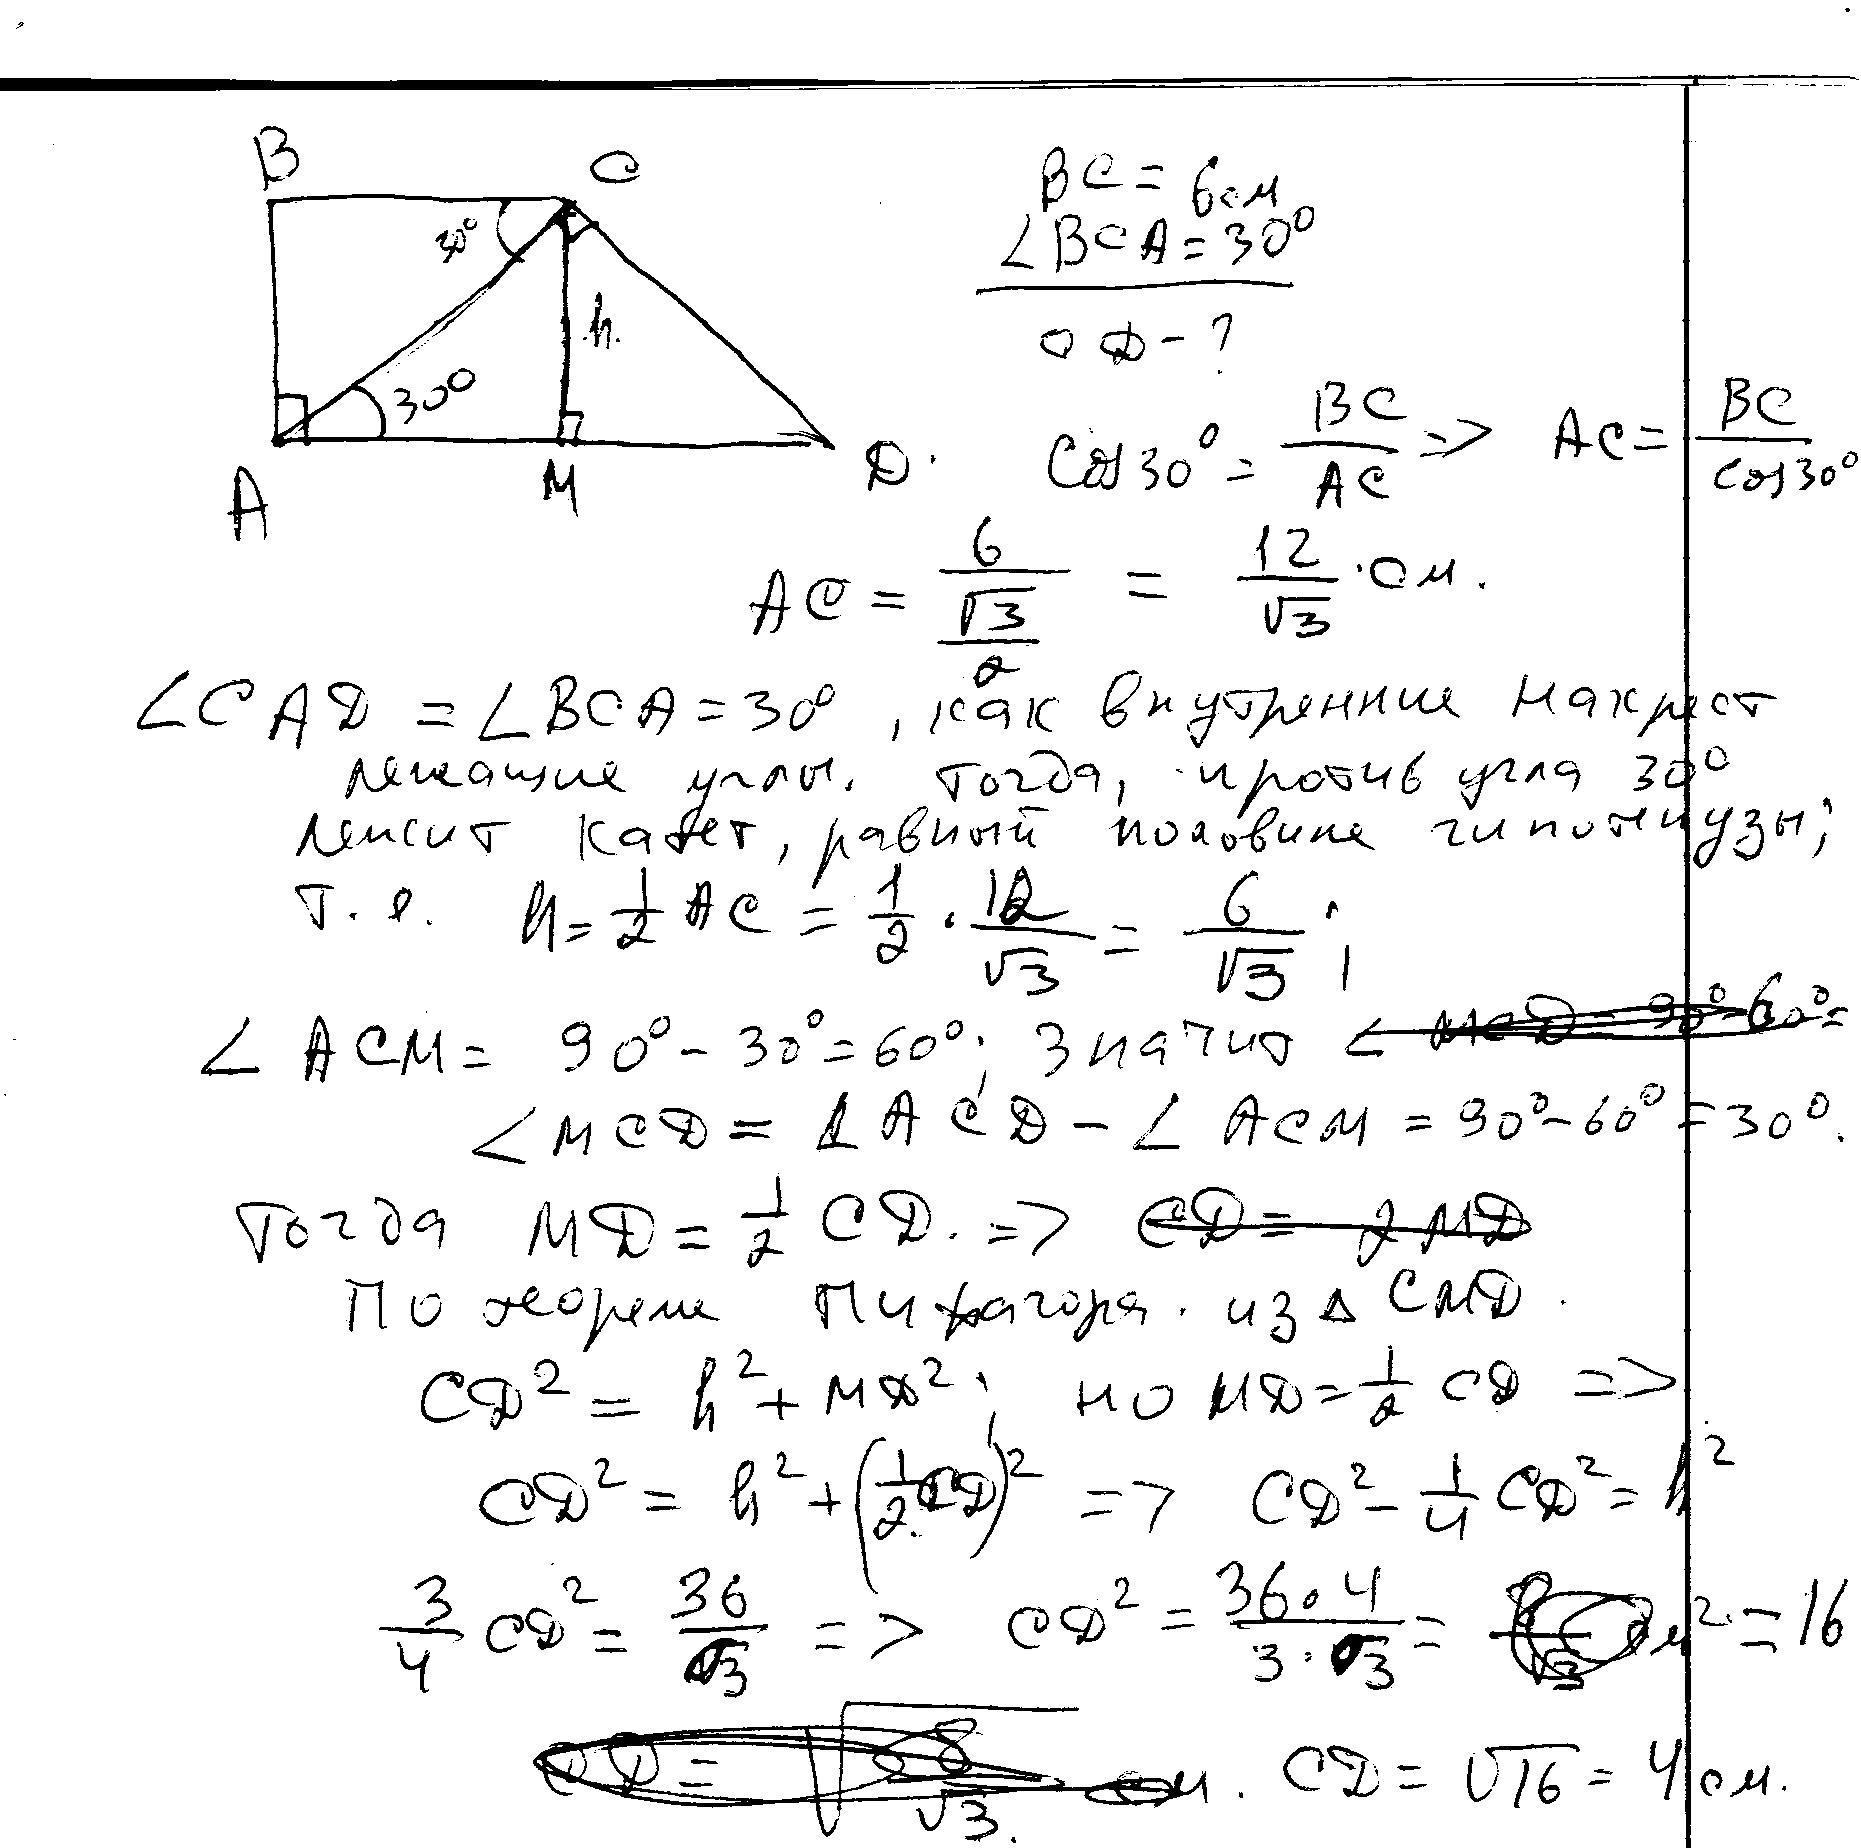 B C
30°
h.
30°
A M D.
BC = 6см
∠BCA = 30°
CD - ?
Cos30° = BC/AC => AC = BC/Cos30°
AC = 6/(√3/2) = 12/√3 · см.
∠CAD = ∠BCA = 30°, как внутренние накрест
лежащие углы. Тогда, против угла 30°
лежит катет, равный половине гипотенузы;
т.е. h = 1/2 AC = 1/2 · 12/√3 = 6/√3;
∠ACM = 90° - 30° = 60°; Значит ∠ MCD = 90° - 60° =
∠MCD = ∠ACD - ∠ACM = 90° - 60° = 30°.
Тогда MD = 1/2 CD. => CD = 2MD
По теореме Пифагора. из Δ CMD.
CD² = h² + MD²; но MD = 1/2 CD =>
CD² = h² + (1/2 CD)² => CD² - 1/4 CD² = h²
3/4 CD² = 36/3 => CD² = 36·4/3·3 = м² = 16
CD = √ √3. м. CD = √16 = 4 см.